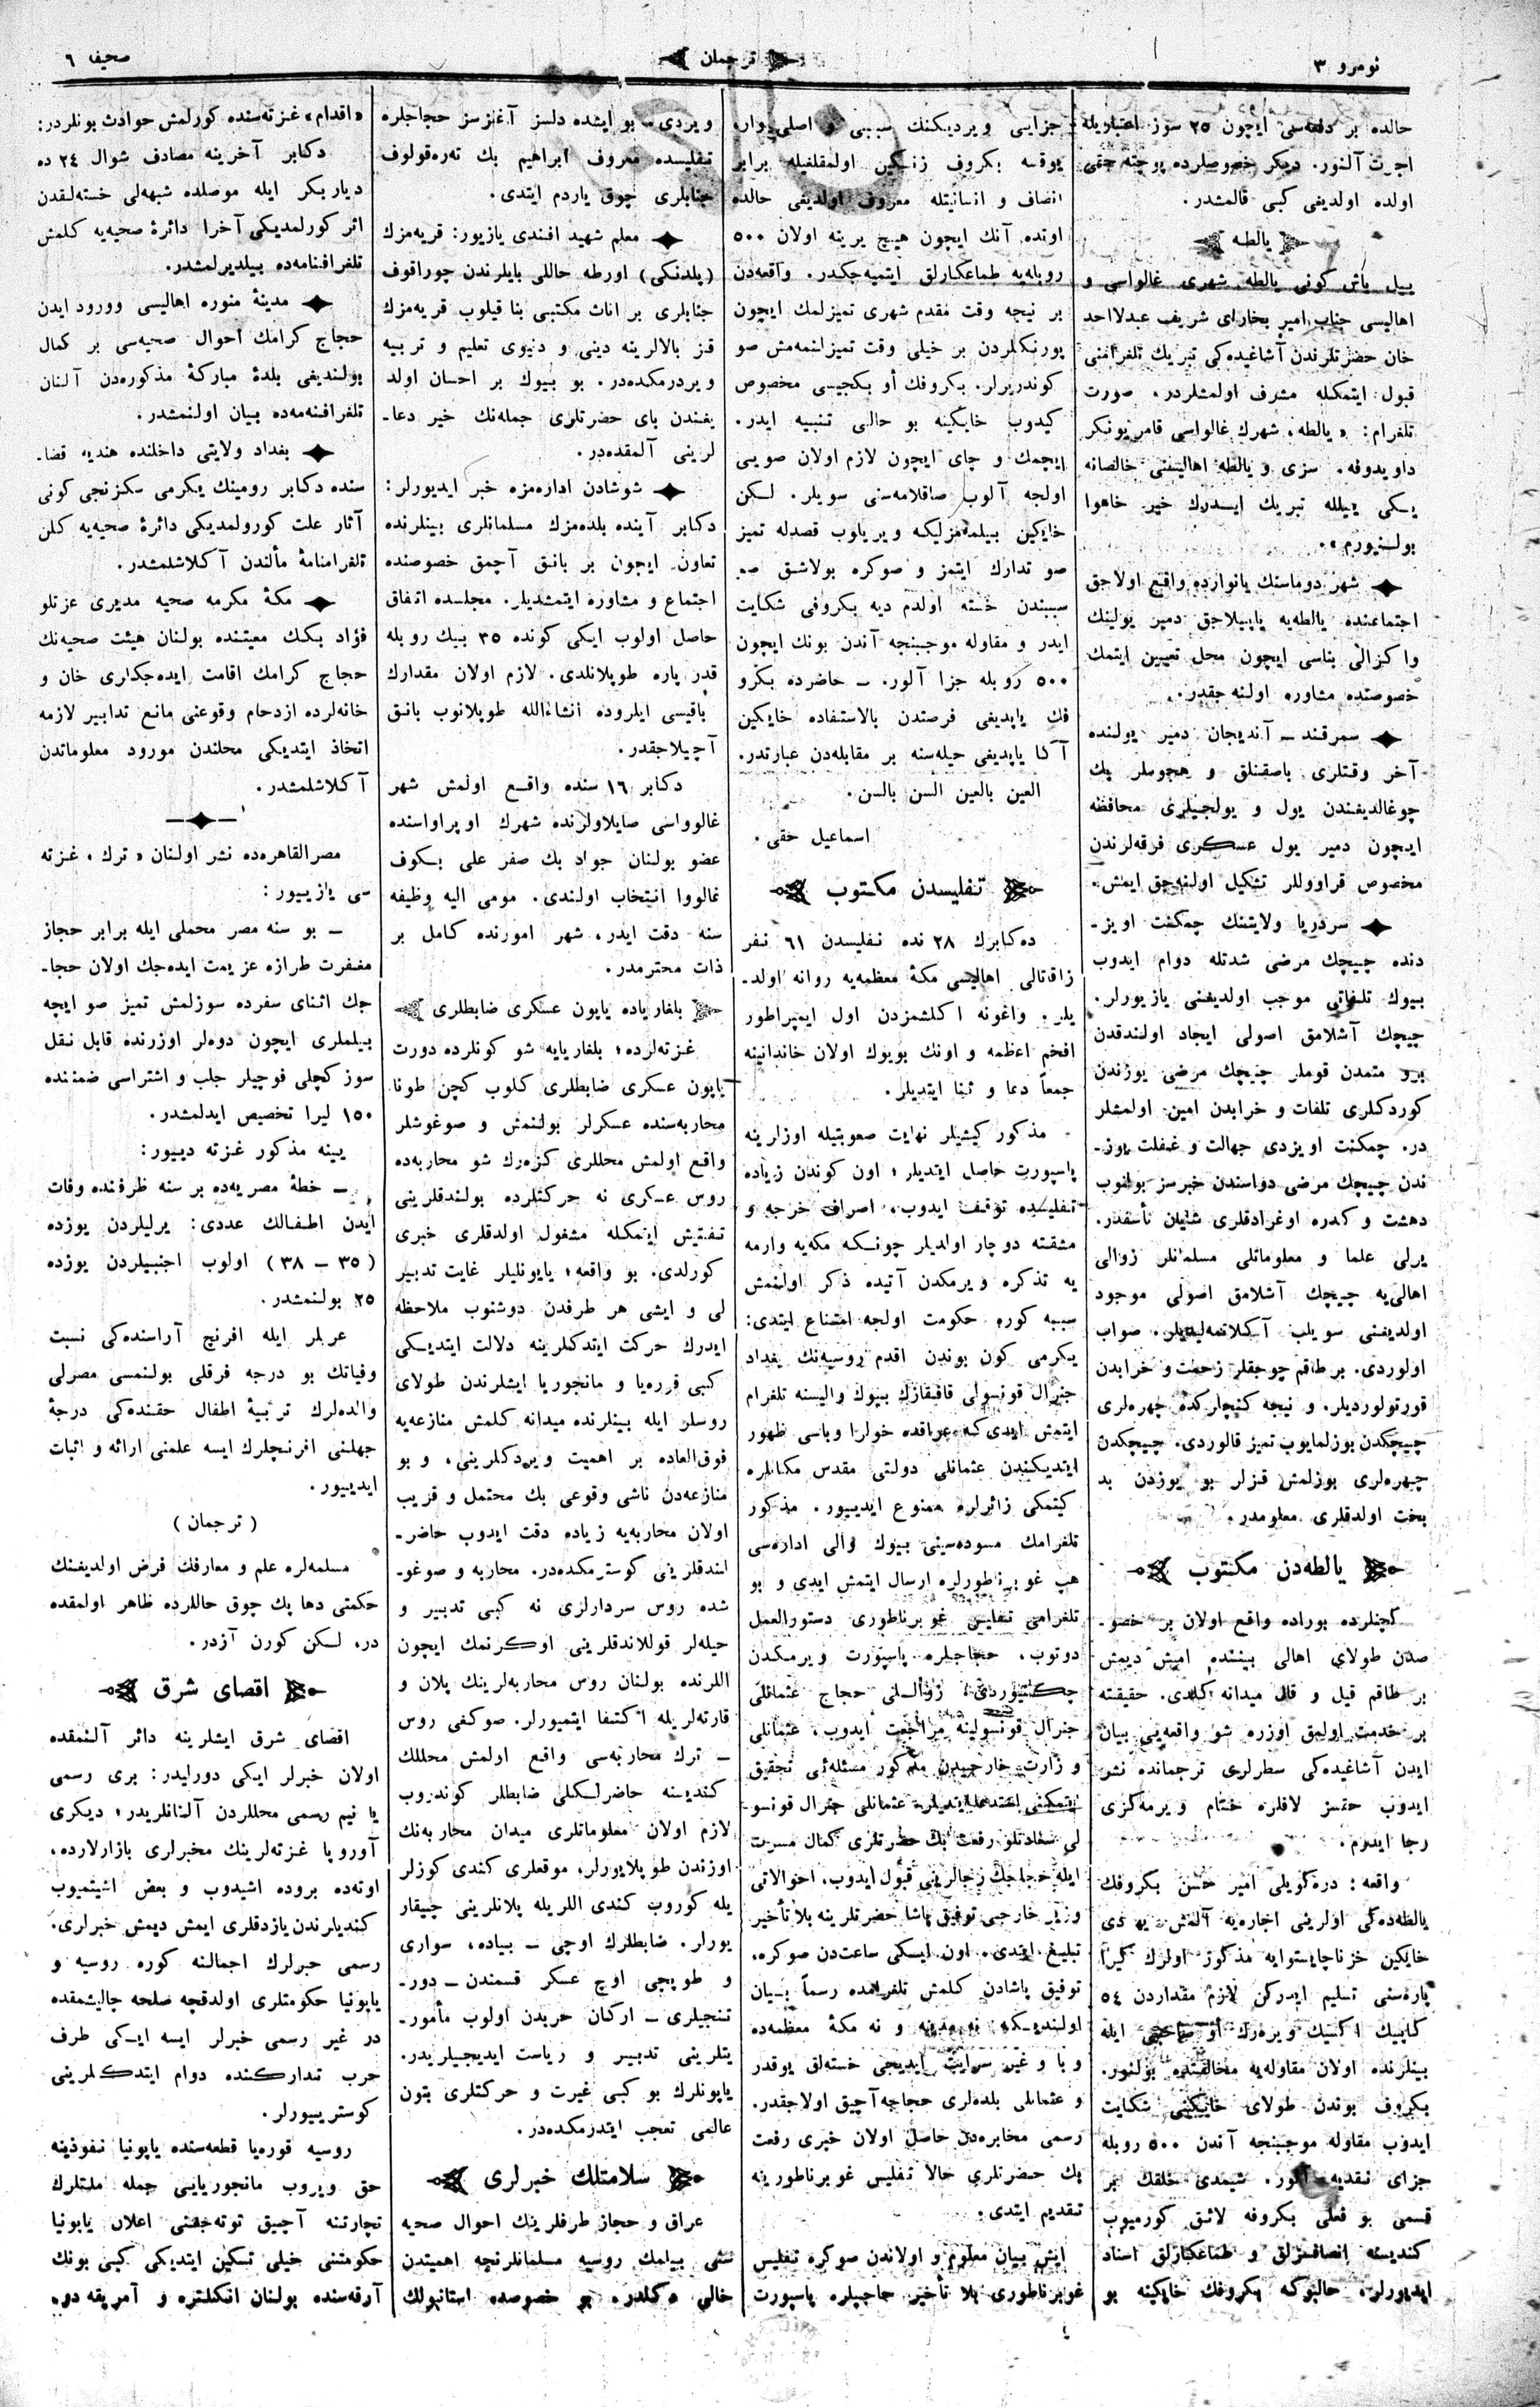 نومرو ٣
ترجمان
صحیفا ٦
حالده بر دفعه‌سی ایچون ٢٥ سوز اعتباریله
اجرت آلنور. دیکر خصوصلرده پوچته حقی
اولده اولدیغی کبی قالمشدر.
یالطه
ییل باش کونی یالطه شهری غالواسی و
اهالیسی جناب امیر بخارای شریف عبدلااحد
خان حضرتلرندن آشاغیده‌کی تبریك تلغرافنی
قبول ایتمکله مشرف اولمشلردر. صورت
تلغرام: «یالطه، شهرك غالواسی قامریونکر
داویدوفه. سزی و یالطه اهالیسنی خالصانه
یکی ییلله تبریك ایدرك خیر خاهوا
بولنیورم».
شهر دوماسنك یانوارده واقع اولاجق
اجتماعنده یالطه‌یه یاپیلاجق دمیر یولینك
واکزالی بناسی ایچون محل تعیین ایتمك
خصوصنده مشاوره اولنه جقدر.
سمرقند ــ آندیجان دمیر یولنده
آخر وقتلری باصقنلق و هجوملر پك
چوغالدیغندن یول و یولجیلری محافظه
ایدچون دمیر یول عسکری فرقه‌لرندن
مخصوص قراووللر تشکیل اولنه‌جق ایمش.
سردریا ولایتنك چمکنت اویز-
دنده چیچك مرضی شدتله دوام ایدوب
بیوك تلفاتی موجب اولدیغنی یازیورلر.
چیچك آشلامق اصولی ایجاد اولندقدن
برو متمدن قوملر چیچك مرضی یوزندن
کوردکلری تلفات و خرابدن امین اولمشلر
در. چمکنت اویزدی جهالت و غفلت یوز-
ندن چیچك مرضی دواسندن خبرسز بولنوب
دهشت و کدره اوغرادقلری شایان تأسفدر.
یرلی علما و معلوماتلی مسلمانلر زوالی
اهالی‌یه چیچك آشلامق اصولی موجود
اولدیغنی سویلب آکلاتمه‌لیدیلر. صواب
اولوردی. بر طاقم چوجقلر زحمت و خرابدن
قورتولوردیلر. و نیجه کنجلرکده چهره‌لری
چیچکدن بوزلمایوب تمیز قالوردی. چیچکدن
چهره‌لری بوزلمش قزلر بو یوزدن بد
بخت اولدقلری معلومدر.
یالطه‌دن مکتوب
کچنلرده بوراده واقع اولان بر خصو-
صدن طولای اهالی بیننده ایمش دیمش
بر طاقم قیل و قال میدانه کلدی. حقیقته
بر خدمت اولمق اوزره شو واقعه‌یی بیان
ایدن آشاغیده‌کی سطرلری ترجمانده نشر
ایدوب حقسز لافلره ختام ویرمه‌کزی
رجا ایدوم.
واقعه: دره‌کویلی امیر حسن بکروفك
یالطه‌ده‌کی اولرینی اجاره‌یه آلمش یهودی
خایکین خزناچایستوایه مذکور اولرك کیرا
پاره‌سنی تسلیم ایدرکن لازم مقداردن ٥٤
کاپیك اکسیك ویره‌رك او صاحبی ایله
بینلرنده اولان مقاوله‌یه مخالفتده بولنور.
بکروف بوندن طولای خایکنی شکایت
ایدوب مقاوله موجبنجه آندن ٥٠٠ روبله
جزای نقدیه آلور. شیمدی خلقك بر
قسمی بو فعلی بکروفه لائق کورمیوب
کندیسنه انصافسزلق و طماعکارلق اسناد
ایدیورلر. حالبوکه بکروفك خایکینه بو
جزایی ویردیکنك سببی و اصلی وار.
یوقسه بکروف زنکین اولمقلغیله برابر
انصاف و انسانیتله معروف اولدیغی حالده
اوتده آنك ایچون هیچ یرینه اولان ٥٠٠
روبله‌یه طماعکارلق ایتمیه‌جکدر. واقعه‌دن
بر نیجه وقت مقدم شهری تمیزلمك ایچون
بورنکلردن بر خیلی وقت تمیزلنمه‌مش صو
کوندریرلر. بکروفك او بکجیسی مخصوص
کیدوب خایکینه بو حالی تنبیه ایدر.
ایچمك و چای ایچون لازم اولان صویی
اولجه آلوب صاقلامه‌سنی سویلر. لکن
خایکین بیلمه‌مزلیکه ویریاوب قصدله تمیز
صو تدارك ایتمز و صوکره بولاشق صو
سببندن خسته اولدم دیه بکروفی شکایت
ایدر و مقاوله موجبنجه آندن بونك ایچون
٥٠٠ روبله جزا آلور. ــ حاضرده بکرو
فك یاپدیغی فرصتدن بالاستفاده خایکین
آکا یاپدیغی حیله‌سنه بر مقابله‌دن عبارتدر.
العین بالعین السن بالسن.
اسماعیل حقی.
تفلیسدن مکتوب
ده‌کابرك ٢٨ نده تفلیسدن ٦١ نفر
زاقاتالی اهالیسی مکۀ معظمه‌یه روانه اولد-
یلر. واغونه اکلشمزدن اول ایمپراطور
افخم اعظمه و اونك بویوك اولان خاندانینه
جمعاً دعا و ثنا ایتدیلر.
مذکور کیشیلر نهایت صعوبتیله اوزلرینه
پاسپورت حاصل ایتدیلر؛ اون کوندن زیاده
تفلیسده توقف ایدوب، اصراف خرجه و
مشقته دوچار اولدیلر چونکه مکه‌یه وارمه
یه تذکره ویرمکدن آتیده ذکر اولنمش
سببه کوره حکومت اولجه امتناع ایتدی:
یکرمی کون بوندن اقدم روسیه‌نك بغداد
جنرال قونسولی قافقازك بیوك والیسنه تلغرام
ایتمش ایدی که، عراقده خولرا وباسی ظهور
ایتدیکندن عثمانلی دولتی مقدس مکانلره
کیتمکی زائرلره ممنوع ایدییور. مذکور
تلغرامك مسوده‌سینی بیوك والی اداره‌سی
هپ غوبرناطورلره ارسال ایتمش ایدی و بو
تلغرامی تفلیس غوبرناطوری دستورالعمل
دوتوب، حجاجلره پاسپورت ویرمکدن
چکنیوردی؛ زوالی حجاج عثمانلی
جنرال قونسولینه مراجعت ایدوب، عثمانلی
وزارت خارجیه‌دن مذکور مسئله‌ئی تحقیق
ایتمکنی استدعا ایتدیلر. عثمانلی جنرال قونسو
لی سعادتلو رفعت بك حضرتلری کمال مسرت
ایله حجاجك رجالرینی قبول ایدوب، احوالاتی
وزیر خارجی توفیق پاشا حضرتلرینه بلا تأخیر
تبلیغ ایتدی. اون ایکی ساعت‌دن صوکره،
توفیق پاشادن کلمش تلغرامده رسماً بیان
اولندیکه: نه مدینه و نه مکۀ معظمه‌ده
وبا و غیر سرایت ایدیجی خسته‌لق یوقدر
و عثمانلی بلده‌لری حجاجه آچیق اولاجقدر.
رسمی مخابره‌دن حاصل اولان خبری رفعت
بك حضرتلری حالا تفلیس غوبرناطورینه
تقدیم ایتدی.
ایش بیان معلوم و اولاندن صوکره تفلیس
غوبرناطوری بلا تأخیر حاجیلره پاسپورت
ویردی. بو ایشده دلسز آغزسز حجاجلره
تفلیسده معروف ابراهیم بك تەره‌قولوف
جنابلری چوق یاردم ایتدی.
معلم شهید افندی یازیور: قریه‌مزك
(یلدنکی) اورطه حاللی بایلرندن چوراقوف
جنابلری بر اناث مکتبی بنا قیلوب قریه‌مزك
قز بالالرینه دینی و دنیوی تعلیم و تربیه
ویردرمکده‌در. بو بیوك بر احسان اولد
یغندن بای حضرتلری جمله‌نك خیر دعا-
لرینی آلمقده‌در.
شوشادن اداره‌مزه خبر ایدیورلر:
دکابر آینده بلده‌مزك مسلمانلری بینلرنده
تعاون ایچون بر بانق آچمق خصوصنده
اجتماع و مشاوره ایتمشدیلر. مجلسده اتفاق
حاصل اولوب ایکی کونده ٣٥ بیك روبله
قدر پاره طوپلانلدی. لازم اولان مقدارك
باقیسی ایلروده انشاءالله طوپلانوب بانق
آچیلاجقدر.
دکابر ١٦ سنده واقع اولمش شهر
غالوواسی صایلاولرنده شهرك اوپراواسنده
عضو بولنان جواد بك صفر علی بکوف
غالووا انتخاب اولندی. مومی الیه وظیفه
سنه دقت ایدر، شهر امورنده کامل بر
ذات محترمدر.
بلغاریاده یاپون عسکری ضابطلری
غزته‌لرده؛ بلغاریایه شو کونلرده دورت
یاپون عسکری ضابطلری کلوب کچن طونا
محاربه‌سنده عسکرلر بولنمش و صوغوشلر
واقع اولمش محللری کزه‌رك شو محاربه‌ده
روس عسکری نه حرکتلرده بولندقلرینی
تفتیش ایتمکله مشغول اولدقلری خبری
کورلدی. بو واقعه؛ یاپونلیلر غایت تدبیر
لی و ایشی هر طرفدن دوشنوب ملاحظه
ایدرك حرکت ایتدکلرینه دلالت ایتدیکی
کبی قوره‌یا و مانجوریا ایشلرندن طولای
روسلر ایله بینلرنده میدانه کلمش منازعه‌یه
فوق‌العاده بر اهمیت ویردکلرینی، و بو
منازعه‌دن ناشی وقوعی بك محتمل و قریب
اولان محاربه‌یه زیاده دقت ایدوب حاضر-
لندقلرینی کوسترمکده‌در. محاربه و صوغو-
شده روس سردارلری نه کبی تدبیر و
حیله‌لر قوللاندقلرینی اوکرنمك ایچون
اللرنده بولنان روس محاربه‌لرینك پلان و
قارته‌لریله اکتفا ایتمیورلر. صوکغی روس
ــ ترك محاربه‌سی واقع اولمش محللك
کندیسنه حاضرلکلی ضابطلر کوندروب
لازم اولان معلوماتلری میدان محاربه‌نك
اوزندن طوپلایورلر، موقعلری کندی کوزلر
یله کوروب کندی اللریله پلانلرینی چیقار
یورلر. ضابطلرك اوچی ــ پیاده، سواری
و طوپچی اوچ عسکر قسمندن ــ دور-
تنجیلری ــ ارکان حربدن اولوب مأمور-
یتلرینی تدبیر و ریاست ایدیجیلریدر.
یاپونلرك بو کبی غیرت و حرکتلری بتون
عالمی تعجب ایتدرمکده‌در.
سلامتلك خبرلری
عراق و حجاز طرفلرینك احوال صحیه
سنی بیلمك روسیه مسلمانلرنچه اهمیتدن
خالی دکلدر. بو خصوصده استانبولك
«اقدام» غزته‌سنده کورلمش حوادث بونلردر:
دکابر آخرینه مصادف شوال ٢٤ ده
دیاربکر ایله موصلده شبهه‌لی خسته‌لقدن
اثر کورلمدیکی آخرا دائرۀ صحیه‌یه کلمش
تلغرافنامه‌ده بیلدیرلمشدر.
مدینۀ منوره اهالیسی وورود ایدن
حجاج کرامك احوال صحیه‌سی بر کمال
بولندیغی بلدۀ مبارکۀ مذکوره‌دن آلنان
تلغرافنه‌مه‌ده بیان اولنمشدر.
بغداد ولایتی داخلنده هندیه قضا-
سنده دکابر رومینك یکرمی سکزنجی کونی
آثار علت کورولمدیکی دائرۀ صحیه‌یه کلن
تلغرامنامۀ مألندن آکلاشلمشدر.
مکۀ مکرمه صحیه مدیری عزتلو
فؤاد بکك معیتنده بولنان هیئت صحیه‌نك
حجاج کرامك اقامت ایده‌جکلری خان و
خانه‌لرده ازدحام وقوعنی مانع تدابیر لازمه
اتخاذ ایتدیکی محلندن مورود معلوماتدن
آکلاشلمشدر.
مصرالقاهره‌ده نشر اولنان «ترك» غزته
سی یازییور:
ــ بو سنه مصر محملی ایله برابر حجاز
مغفرت طرازه عزیمت ایده‌جك اولان حجا-
جك اثنای سفرده سوزلمش تمیز صو ایچه
بیلملری ایچون دوه‌لر اوزرنده قابل نقل
سوزکچلی فوچیلر جلب و اشتراسی ضمننده
١٥٠ لیرا تخصیص ایدلمشدر.
یینه مذکور غزته دییور:
ــ خطۀ مصریه‌ده بر سنه ظرفنده وفات
ایدن اطفالك عددی: یرلیلردن یوزده
(٣٥ ــ ٣٨) اولوب اجنبیلردن یوزده
٢٥ بولنمشدر.
عربلر ایله افرنج آراسنده‌کی نسبت
وفیاتك بو درجه فرقلی بولنمسی مصرلی
والده‌لرك تربیۀ اطفال حقنده‌کی درجۀ
جهلنی افرنجلرك ایسه علمنی ارائه و اثبات
ایدییور.
(ترجمان)
مسلمه‌لره علم و معارفك فرض اولدیغنك
حکمتی دها پك چوق حاللرده ظاهر اولمقده
در، لکن کورن آزدر.
اقصای شرق
اقصای شرق ایشلرینه دائر آلنمقده
اولان خبرلر ایکی دورلیدر: بری رسمی
یا نیم رسمی محللردن آلنانلریدر؛ دیکری
آوروپا غزته‌لرینك مخبرلری بازارلارده،
اوته‌ده بروده اشیدوب و بعض اشیتمیوب
کندیلرندن یازدقلری ایمش دیمش خبرلری.
رسمی خبرلرك اجمالنه کوره روسیه و
یاپونیا حکومتلری اولدقچه صلحه چالیشمقده
در غیر رسمی خبرلر ایسه ایکی طرف
حرب تدارکنده دوام ایتدکلرینی
کوستریيورلر.
روسیه قوره‌یا قطعه‌سنده یاپونیا نفوذینه
حق ویروب مانجوریایی جمله ملتلرك
تجارتنه آچیق توته‌جغنی اعلان یاپونیا
حکومتنی خیلی تسکین ایتدیکی کبی بونك
آرقه‌سنده بولنان انکلتره و آمریقه دو.